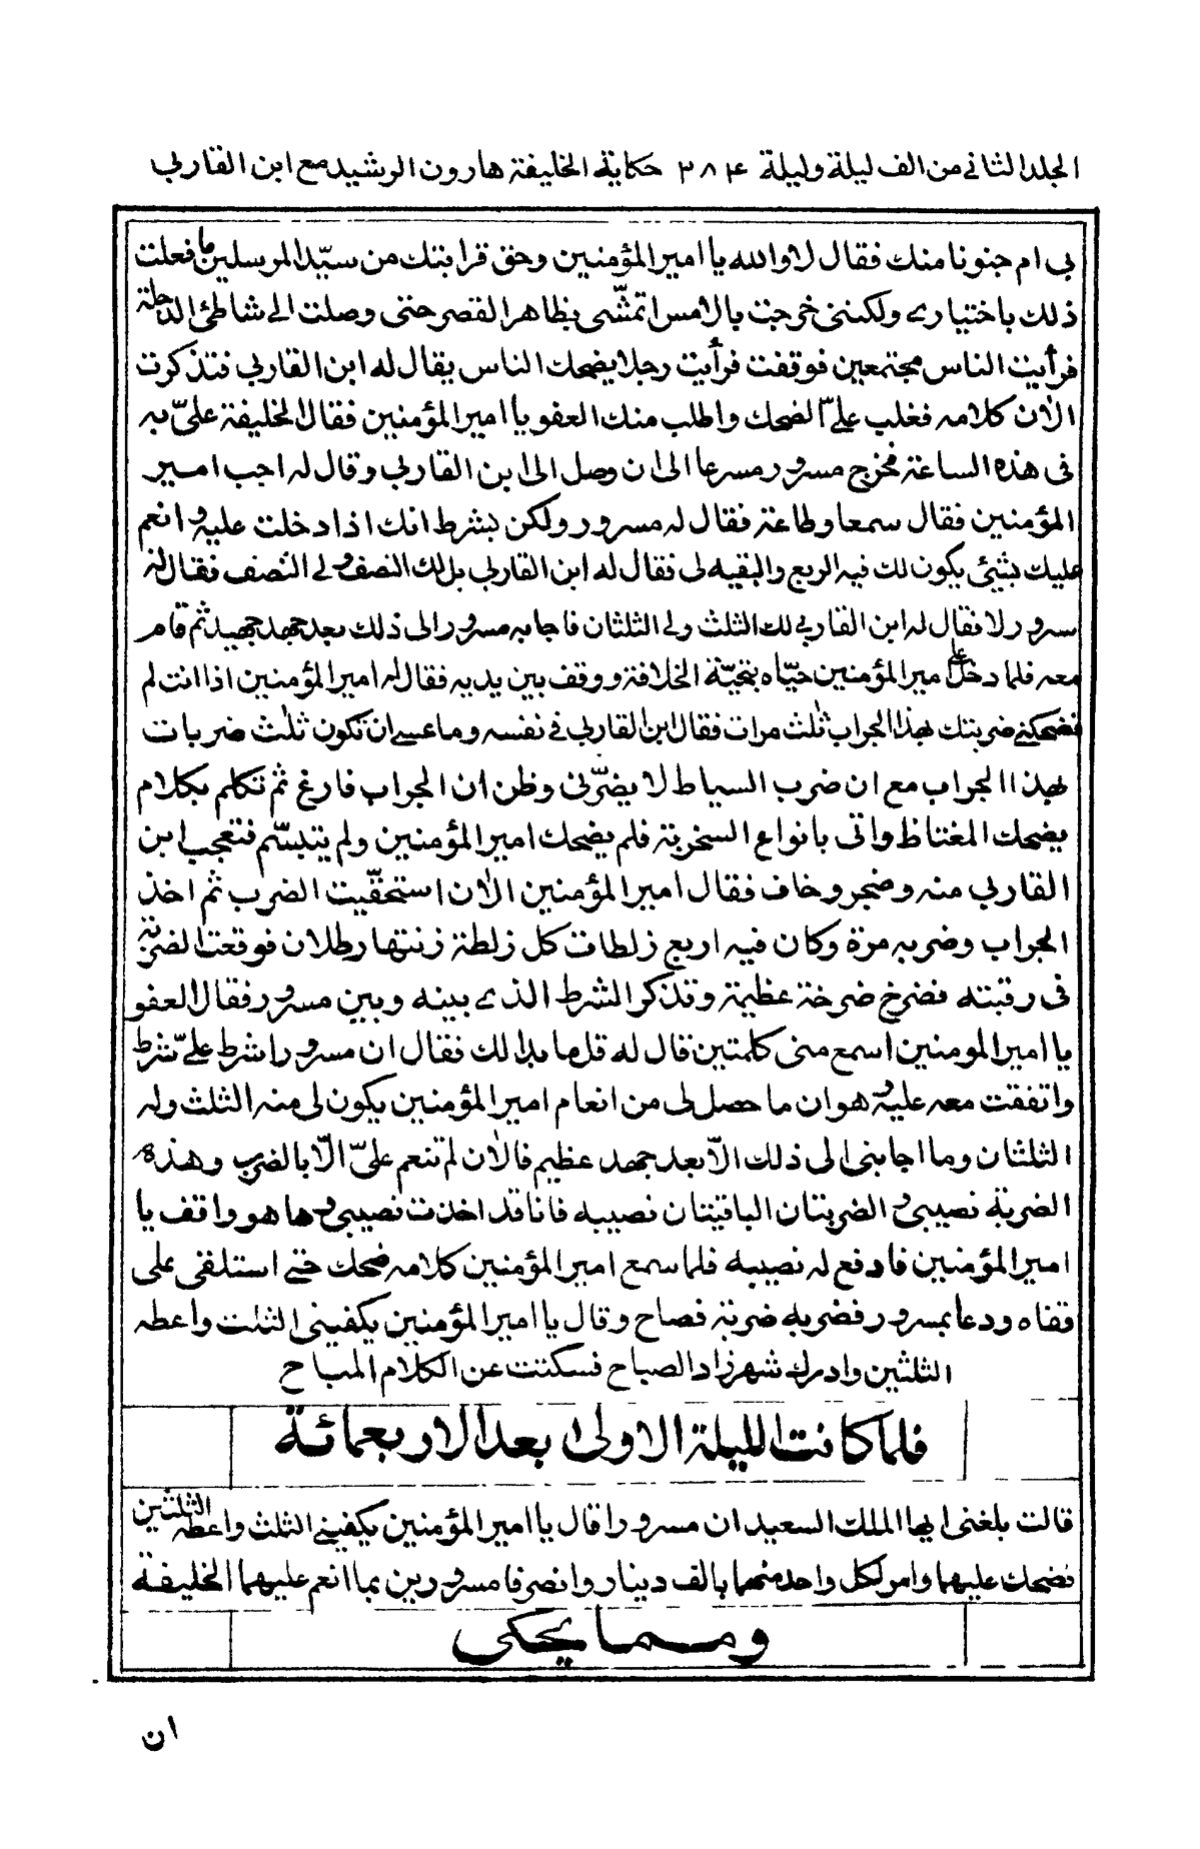 المجلد الثاني من الف ليلة وليلة ٣٨٤ حكاية الخليفة هارون الرشيد مع ابن القاربي
بي ام جنونا منك فقال لا والله يا امير المؤمنين وحق قرابتك من سيّد المرسلين ما فعلت
ذلك باختياري ولكنني خرجت بالامس اتمشّى بظاهر القصر حتى وصلت الى شاطئ الدجلة
فرأيت الناس مجتمعين فوقفت فرأيت رجلا يضحك الناس يقال له ابن القاربي فتذكرت
الآن كلامه فغلب عليّ الضحك واطلب منك العفو يا امير المؤمنين فقال الخليفة عليّ به
في هذه الساعة فخرج مسرور مسرعا الى ان وصل الى ابن القاربي وقال له اجب امير
المؤمنين فقال سمعا وطاعة فقال له مسرور ولكن بشرط انك اذا دخلت عليه وانعم
عليك بشئ يكون لك فيه الربع والبقيه لى فقال له ابن القاربي بل لك النصف ولي النصف فقال له
سرور لا فقال له ابن القاربي لك الثلث ولي الثلثان فاجابه مسرور الى ذلك بعد جهد جهيد ثم قام
معه فلما دخل على امير المؤمنين حيّاه بتحيّة الخلافة ووقف بين يديه فقال له امير المؤمنين اذا انت لم
تضحكني ضربتك بهذا الجراب ثلث مرات فقال ابن القاربي في نفسه وما عسى ان تكون ثلث ضربات
بهذا الجراب مع ان ضرب السياط لا يضرّني وظن ان الجراب فارغ ثم تكلم بكلام
يضحك المغتاظ واتى بانواع السخرية فلم يضحك امير المؤمنين ولم يتبسّم فتعجب ابن
القاربي منه وضجر وخاف فقال امير المؤمنين الآن استحقّيت الضرب ثم اخذ
الجراب وضربه مرة وكان فيه اربع زلطات كل زلطة زنتها رطلان فوقعت الضربة
في رقبته فصرخ صرخة عظيمة وتذكر الشرط الذي بينه وبين مسرور فقال العفو
يا امير المومنين اسمع منى كلمتين قال له قل ما بدا لك فقال ان مسرورا شرط عليّ شرط
واتفقت معه عليه وهو ان ما حصل لى من انعام امير المؤمنين يكون لى منه الثلث وله
الثلثان وما اجابنى الى ذلك الّا بعد جهد عظيم فالآن لم تنعم عليّ الّا بالضرب وهذه
الضربة نصيبي والضربتان الباقيتان نصيبه فانا قد اخذت نصيبي وها هو واقف يا
امير المؤمنين فادفع له نصيبه فلما سمع امير المؤمنين كلامه ضحك حتى استلقى على
قفاه ودعا بمسرور فضربه ضربة فصاح وقال يا امير المؤمنين يكفيني الثلث واعطه
الثلثين وادرك شهرزاد الصباح فسكتت عن الكلام المباح
فلما كانت الليلة الاولى بعد الاربعمائة
قالت بلغني ايها الملك السعيد ان مسرورا قال يا امير المؤمنين يكفيني الثلث واعطه الثلثين
فضحك عليهما وامر لكل واحد منهما بالف دينار وانصرفا مسرورين بما انعم عليهما الخليفة
ومما يحكى
ان